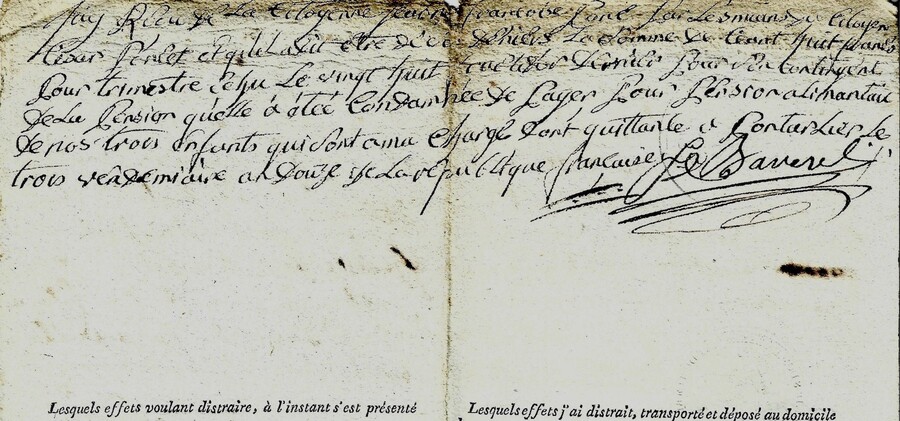 Jay Reçu de La Citoyenne jeanne françoise par Les mains du Citoyen
Cesar et quil a dit être de ses deniers La somme de Cent huit francs
Pour trimestre Echu Le vingt huit dernier Pour son Contingent
de La Pension quelle à étée Condamnée de Payer Pour Pension alimantair
de nos trois Enfants qui sont a ma Charge dont quittance a Pontarlier le
trois vendemiaire an Douze de La republique française
Lesquels effets voulant distraire, à l'instant s'est présenté
Lesquels effets j'ai distrait, transporté et déposé au domicile